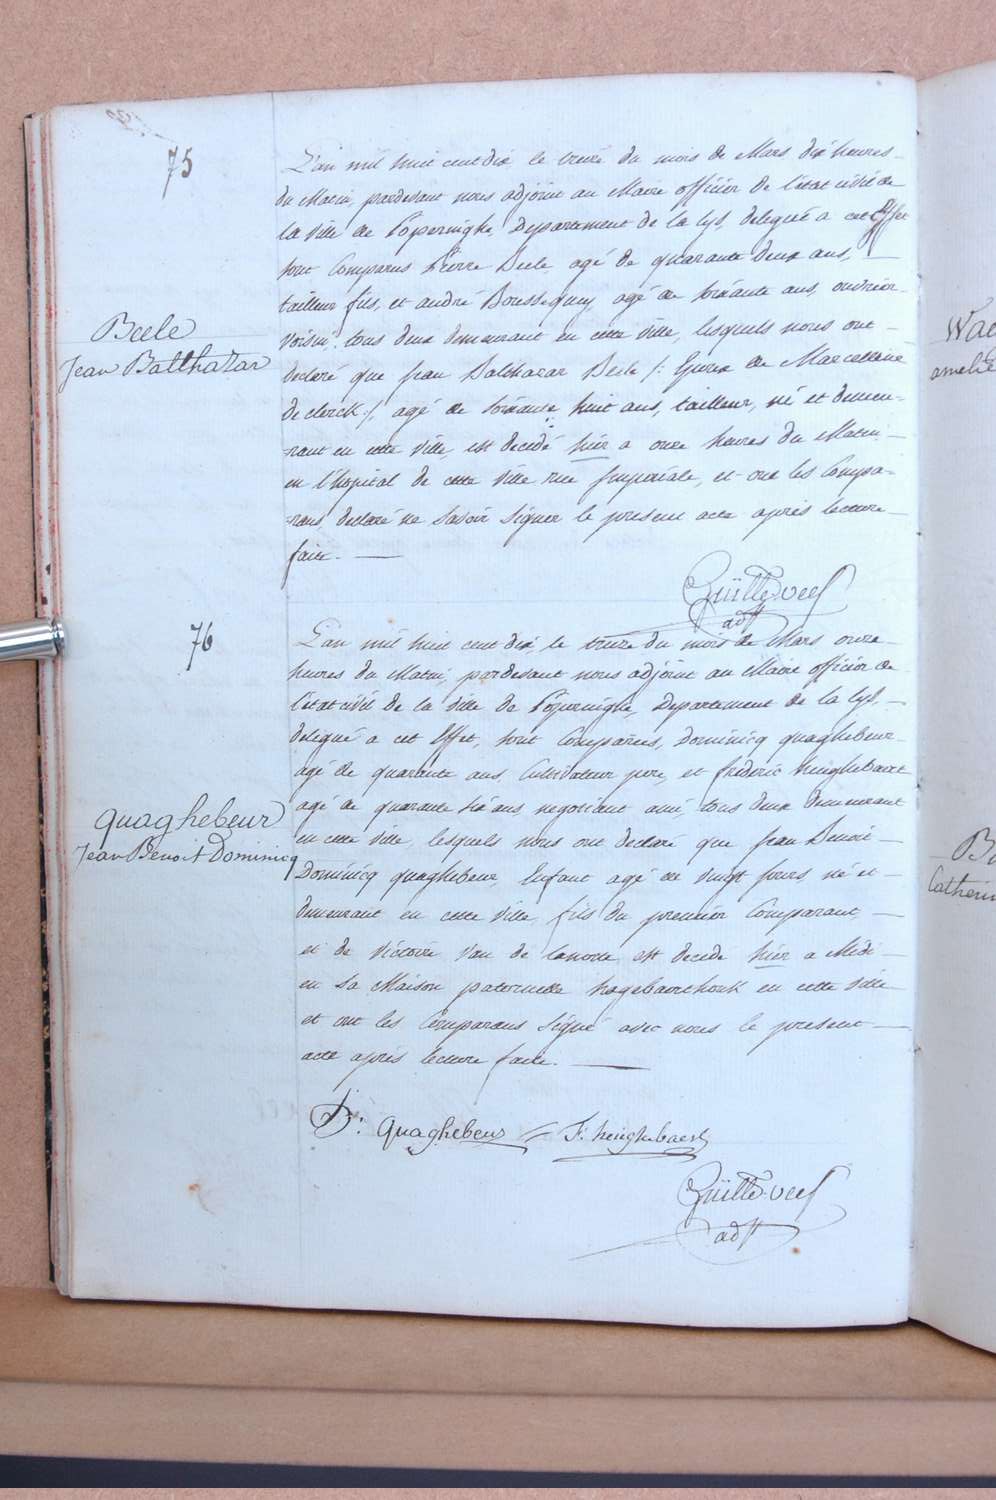 75
L'an mil huit cent dix, le treize du mois de Mars dix heures
du Matin, pardevant nous adjoint au Maire officier de l'état civil de
la ville de Poperinghe, Departement de la Lys, delegué a cet Effet
sont Comparus Pierre Beele, agé de quarante deux ans,
tailleur, fils, et andré Boussequey, agé de soixante ans, ouvrier
voisin, tous deux demeurant en cette ville, lesquels nous ont
Beele
declaré que Jean Balthazar Beele /: Epoux de Marcelline
Jean Balthazar
de clerck :/, agé de soixante huit ans, tailleur, né et demeu-
rant en cette ville, est decédé hier a onze heures du Matin
en l'hopital de cette ville rue Imperiale, et ont les Compa-
rans, declaré ne savoir signer le present acte après lecture
faite.
Guilleveel
adjt
76
L'an mil huit cent dix, le treize du mois de Mars onze
heures du Matin, pardevant nous adjoint au Maire officier de
l'état civil de la ville de Poperinghe, Departement de la Lys,
delegué a cet Effet, sont Comparus, Dominicq quaghebeur
agé de quarante ans, Cultivateur, pere, et fréderic heughebaert
agé de quarante six ans, negotiant ami, tous deux demeurant
quaghebeur
en cette ville, lesquels nous ont declaré que Jean Benoit
Jean Benoit Dominicq
Dominicq quaghebeur, Enfant agé de vingt jours, né et
demeurant en cette ville, fils du premier Comparant,
et de victoire van de lanotte est decedé hier a Midi
en sa Maison paternelle en cette ville
et ont les Comparans signé avec nous le present
acte après lecture faite.
D: quaghebeur F: heughebaert
Guilleveel
adjt
Wae
amelie
Catherin